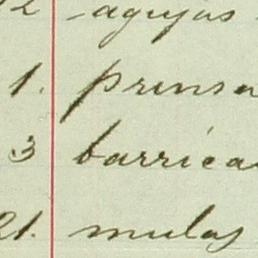 2 agujas
1. prensa
3 barrica
21. mulas